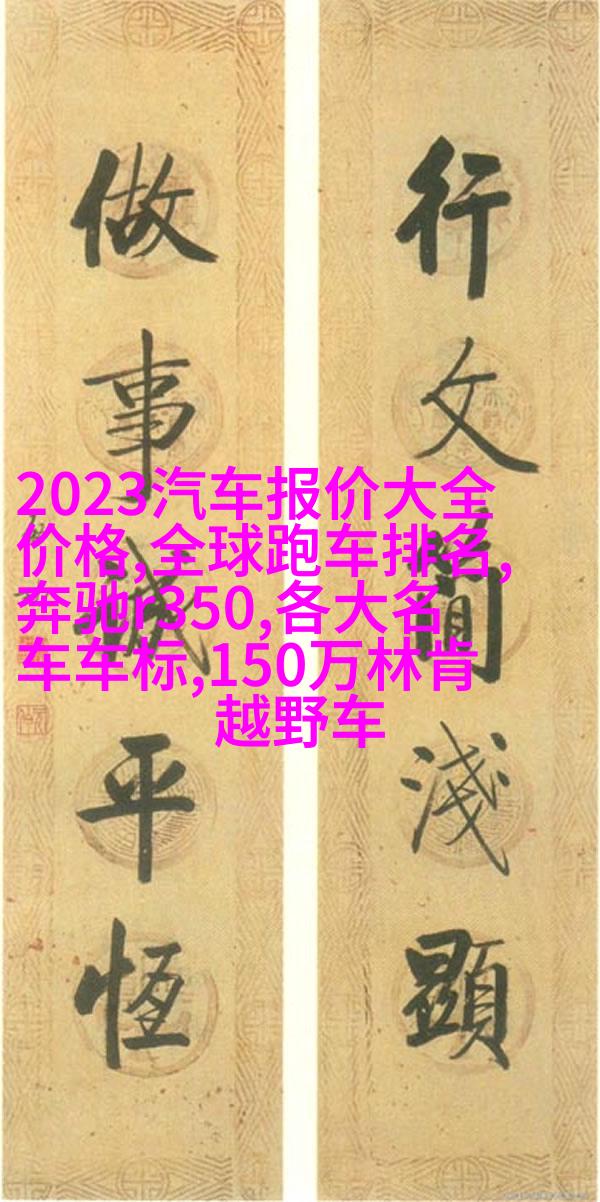 行文簡淺顯
做事誠平恆
2023汽车报价大全
价格,全球跑车排名,
奔驰r350,各大名
车车标,150万林肯
越野车